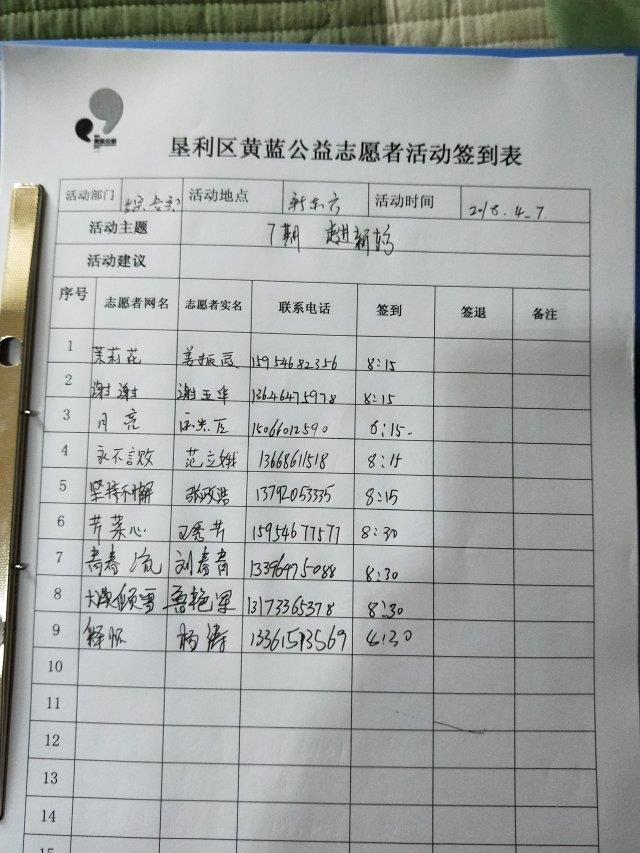 垦利区黄蓝公益志愿者活动签到表
活动部门 活动地点 活动时间 2018.4.7
活动主题 7期
活动建议
序号 志愿者网名 志愿者实名 联系电话 签到 签退 备注
1 茉莉花 姜振霞 15954682356 8:15
2 谢谢 谢玉华 13646475978 8:15
3 月亮 15066012590 8:15
4 永不言败 范立娥 13668611518 8:15
5 坚持不懈 张政浩 13792053335 8:15
6 芹菜心 王秀芳 15954677577 8:30
7 青春 刘春青 13396475088 8:30
8 13173365378 8:30
9 释怀 杨涛 13361513569 8:30
10
11
12
13
14
15